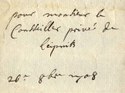 pour monsieur le
Conseiller privé de
Leibnitz
26e 8bre 1708